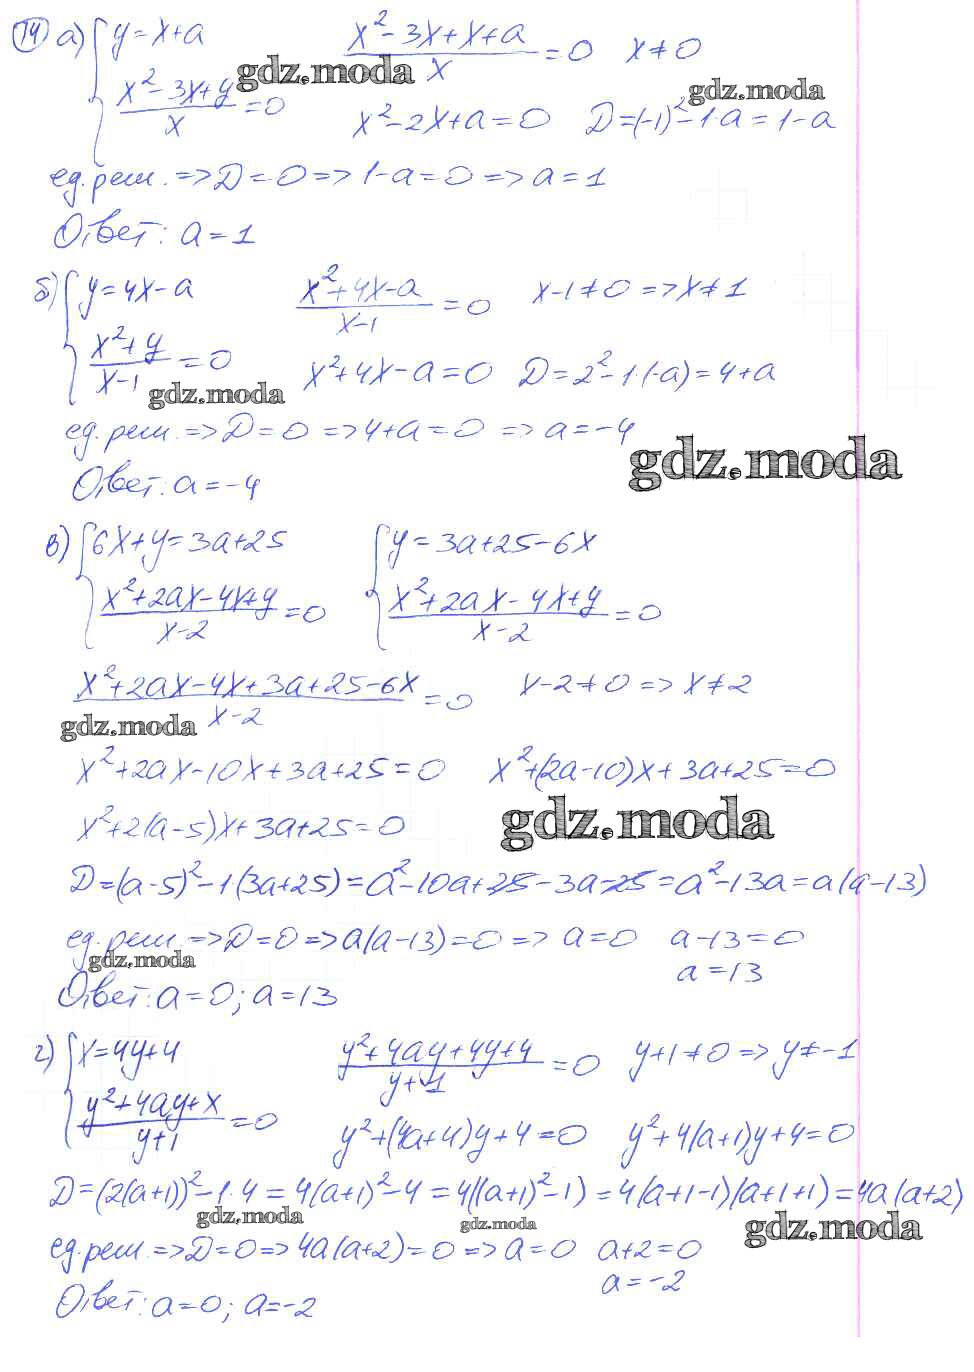 14 а) { y = x+a   (x² - 3x + x + a)/x = 0   x ≠ 0
(x² - 3x + y)/x = 0   x² - 2x + a = 0   D = (-1)² - 1·a = 1 - a
gdz.moda
gdz.moda
ед. реш. => D = 0 => 1 - a = 0 => a = 1
Ответ: a = 1
б) { y = 4x - a   (x² + 4x - a)/(x-1) = 0   x - 1 ≠ 0 => x ≠ 1
(x² + y)/(x-1) = 0   x² + 4x - a = 0   D = 2² - 1·(-a) = 4 + a
gdz.moda
ед. реш. => D = 0 => 4 + a = 0 => a = -4
gdz.moda
Ответ: a = -4
в) { 6x + y = 3a + 25   { y = 3a + 25 - 6x
(x² + 2ax - 4x + y)/(x-2) = 0   (x² + 2ax - 4x + y)/(x-2) = 0
(x² + 2ax - 4x + 3a + 25 - 6x)/(x-2) = 0   x - 2 ≠ 0 => x ≠ 2
gdz.moda
x² + 2ax - 10x + 3a + 25 = 0   x² + (2a - 10)x + 3a + 25 = 0
x² + 2(a - 5)x + 3a + 25 = 0
gdz.moda
D = (a - 5)² - 1(3a + 25) = a² - 10a + 25 - 3a - 25 = a² - 13a = a(a - 13)
ед. реш. => D = 0 => a(a - 13) = 0 => a = 0   a - 13 = 0
gdz.moda
a = 13
Ответ: a = 0; a = 13
г) { x = 4y + 4   (y² + 4ay + 4y + 4)/(y+1) = 0   y + 1 ≠ 0 => y ≠ -1
(y² + 4ay + x)/(y+1) = 0   y² + (4a + 4)y + 4 = 0   y² + 4(a + 1)y + 4 = 0
D = (2(a+1))² - 1·4 = 4(a+1)² - 4 = 4((a+1)² - 1) = 4(a+1-1)(a+1+1) = 4a(a+2)
gdz.moda
gdz.moda
gdz.moda
ед. реш. => D = 0 => 4a(a+2) = 0 => a = 0   a + 2 = 0
a = -2
Ответ: a = 0; a = -2